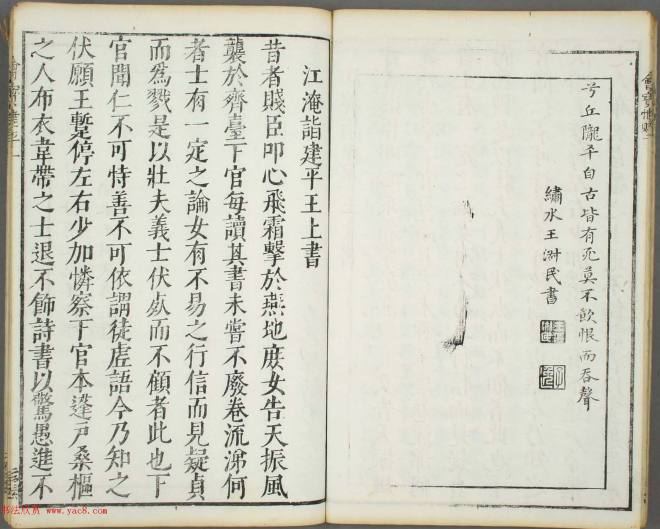 兮丘隴平自古皆有死莫不飲恨而吞聲
繡水王澍民書
江淹詣建平王上書
昔者賤臣叩心飛霜擊於燕地庶女告天振風
襲於齊臺下官每讀其書未嘗不廢卷流涕何
者士有一定之論女有不易之行信而見疑貞
而爲戮是以壯夫義士伏死而不顧者此也下
官聞仁不可恃善不可依謂徒虛語今乃知之
伏願王蹔停左右少加憐察下官本蓬戶桑樞
之人布衣韋帶之士退不飾詩書以驚愚進不
书法欣赏 www.yac8.com